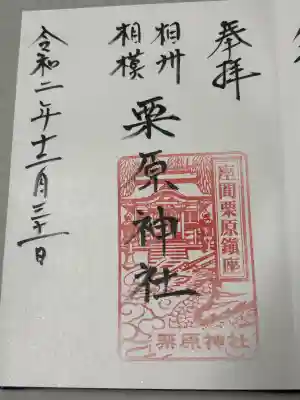 奉拝
相州
相模
栗原神社
座間栗原鎮座
栗原神社
令和二年十二月三十一日